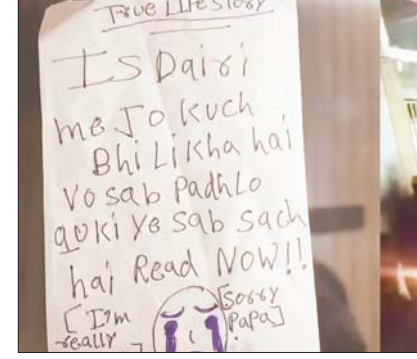 True Life Story
IS Dairi
me Jo Kuch
Bhi Likha hai
Vo sab Padh Lo
quki ye sab sach
hai Read NOW!!
[I'm really] [Sorry Papa]